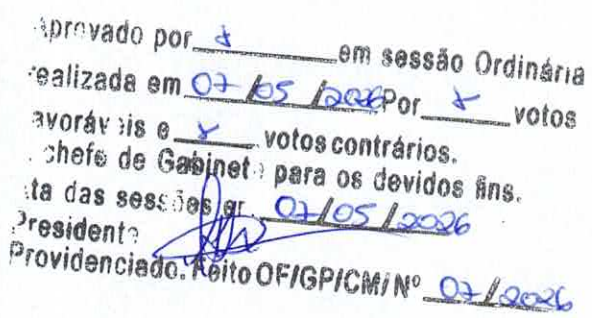 Aprovado por ____ em sessão Ordinária
realizada em 07/05/2026 Por ____ votos
favoráveis e ____ votos contrários.
chefe de Gabinete para os devidos fins.
ta das sessões em 07/05/2026
Presidente
Providenciado. Feito OF/GP/CM/Nº 07/2026